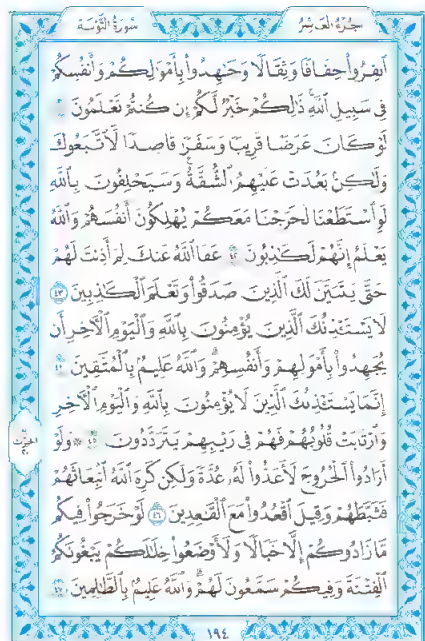 الجزء العاشر
سورة التوبة
ٱنفِرُوا۟ خِفَافًا وَثِقَالًا وَجَـٰهِدُوا۟ بِأَمْوَٰلِكُمْ وَأَنفُسِكُمْ
فِى سَبِيلِ ٱللَّهِ ذَٰلِكُمْ خَيْرٌ لَّكُمْ إِن كُنتُمْ تَعْلَمُونَ ٤١
لَوْ كَانَ عَرَضًا قَرِيبًا وَسَفَرًا قَاصِدًا لَّٱتَّبَعُوكَ
وَلَـٰكِنۢ بَعُدَتْ عَلَيْهِمُ ٱلشُّقَّةُ وَسَيَحْلِفُونَ بِٱللَّهِ
لَوِ ٱسْتَطَعْنَا لَخَرَجْنَا مَعَكُمْ يُهْلِكُونَ أَنفُسَهُمْ وَٱللَّهُ
يَعْلَمُ إِنَّهُمْ لَكَـٰذِبُونَ ٤٢ عَفَا ٱللَّهُ عَنكَ لِمَ أَذِنتَ لَهُمْ
حَتَّىٰ يَتَبَيَّنَ لَكَ ٱلَّذِينَ صَدَقُوا۟ وَتَعْلَمَ ٱلْكَـٰذِبِينَ ٤٣
لَا يَسْتَـْٔذِنُكَ ٱلَّذِينَ يُؤْمِنُونَ بِٱللَّهِ وَٱلْيَوْمِ ٱلْـَٔاخِرِ أَن
يُجَـٰهِدُوا۟ بِأَمْوَٰلِهِمْ وَأَنفُسِهِمْ وَٱللَّهُ عَلِيمٌۢ بِٱلْمُتَّقِينَ ٤٤
إِنَّمَا يَسْتَـْٔذِنُكَ ٱلَّذِينَ لَا يُؤْمِنُونَ بِٱللَّهِ وَٱلْيَوْمِ ٱلْـَٔاخِرِ
وَٱرْتَابَتْ قُلُوبُهُمْ فَهُمْ فِى رَيْبِهِمْ يَتَرَدَّدُونَ ٤٥ ۞ وَلَوْ
أَرَادُوا۟ ٱلْخُرُوجَ لَأَعَدُّوا۟ لَهُۥ عُدَّةً وَلَـٰكِن كَرِهَ ٱللَّهُ ٱنۢبِعَاثَهُمْ
فَثَبَّطَهُمْ وَقِيلَ ٱقْعُدُوا۟ مَعَ ٱلْقَـٰعِدِينَ ٤٦ لَوْ خَرَجُوا۟ فِيكُم
مَّا زَادُوكُمْ إِلَّا خَبَالًا وَلَأَوْضَعُوا۟ خِلَـٰلَكُمْ يَبْغُونَكُمُ
ٱلْفِتْنَةَ وَفِيكُمْ سَمَّـٰعُونَ لَهُمْ وَٱللَّهُ عَلِيمٌۢ بِٱلظَّـٰلِمِينَ ٤٧
١٩٤